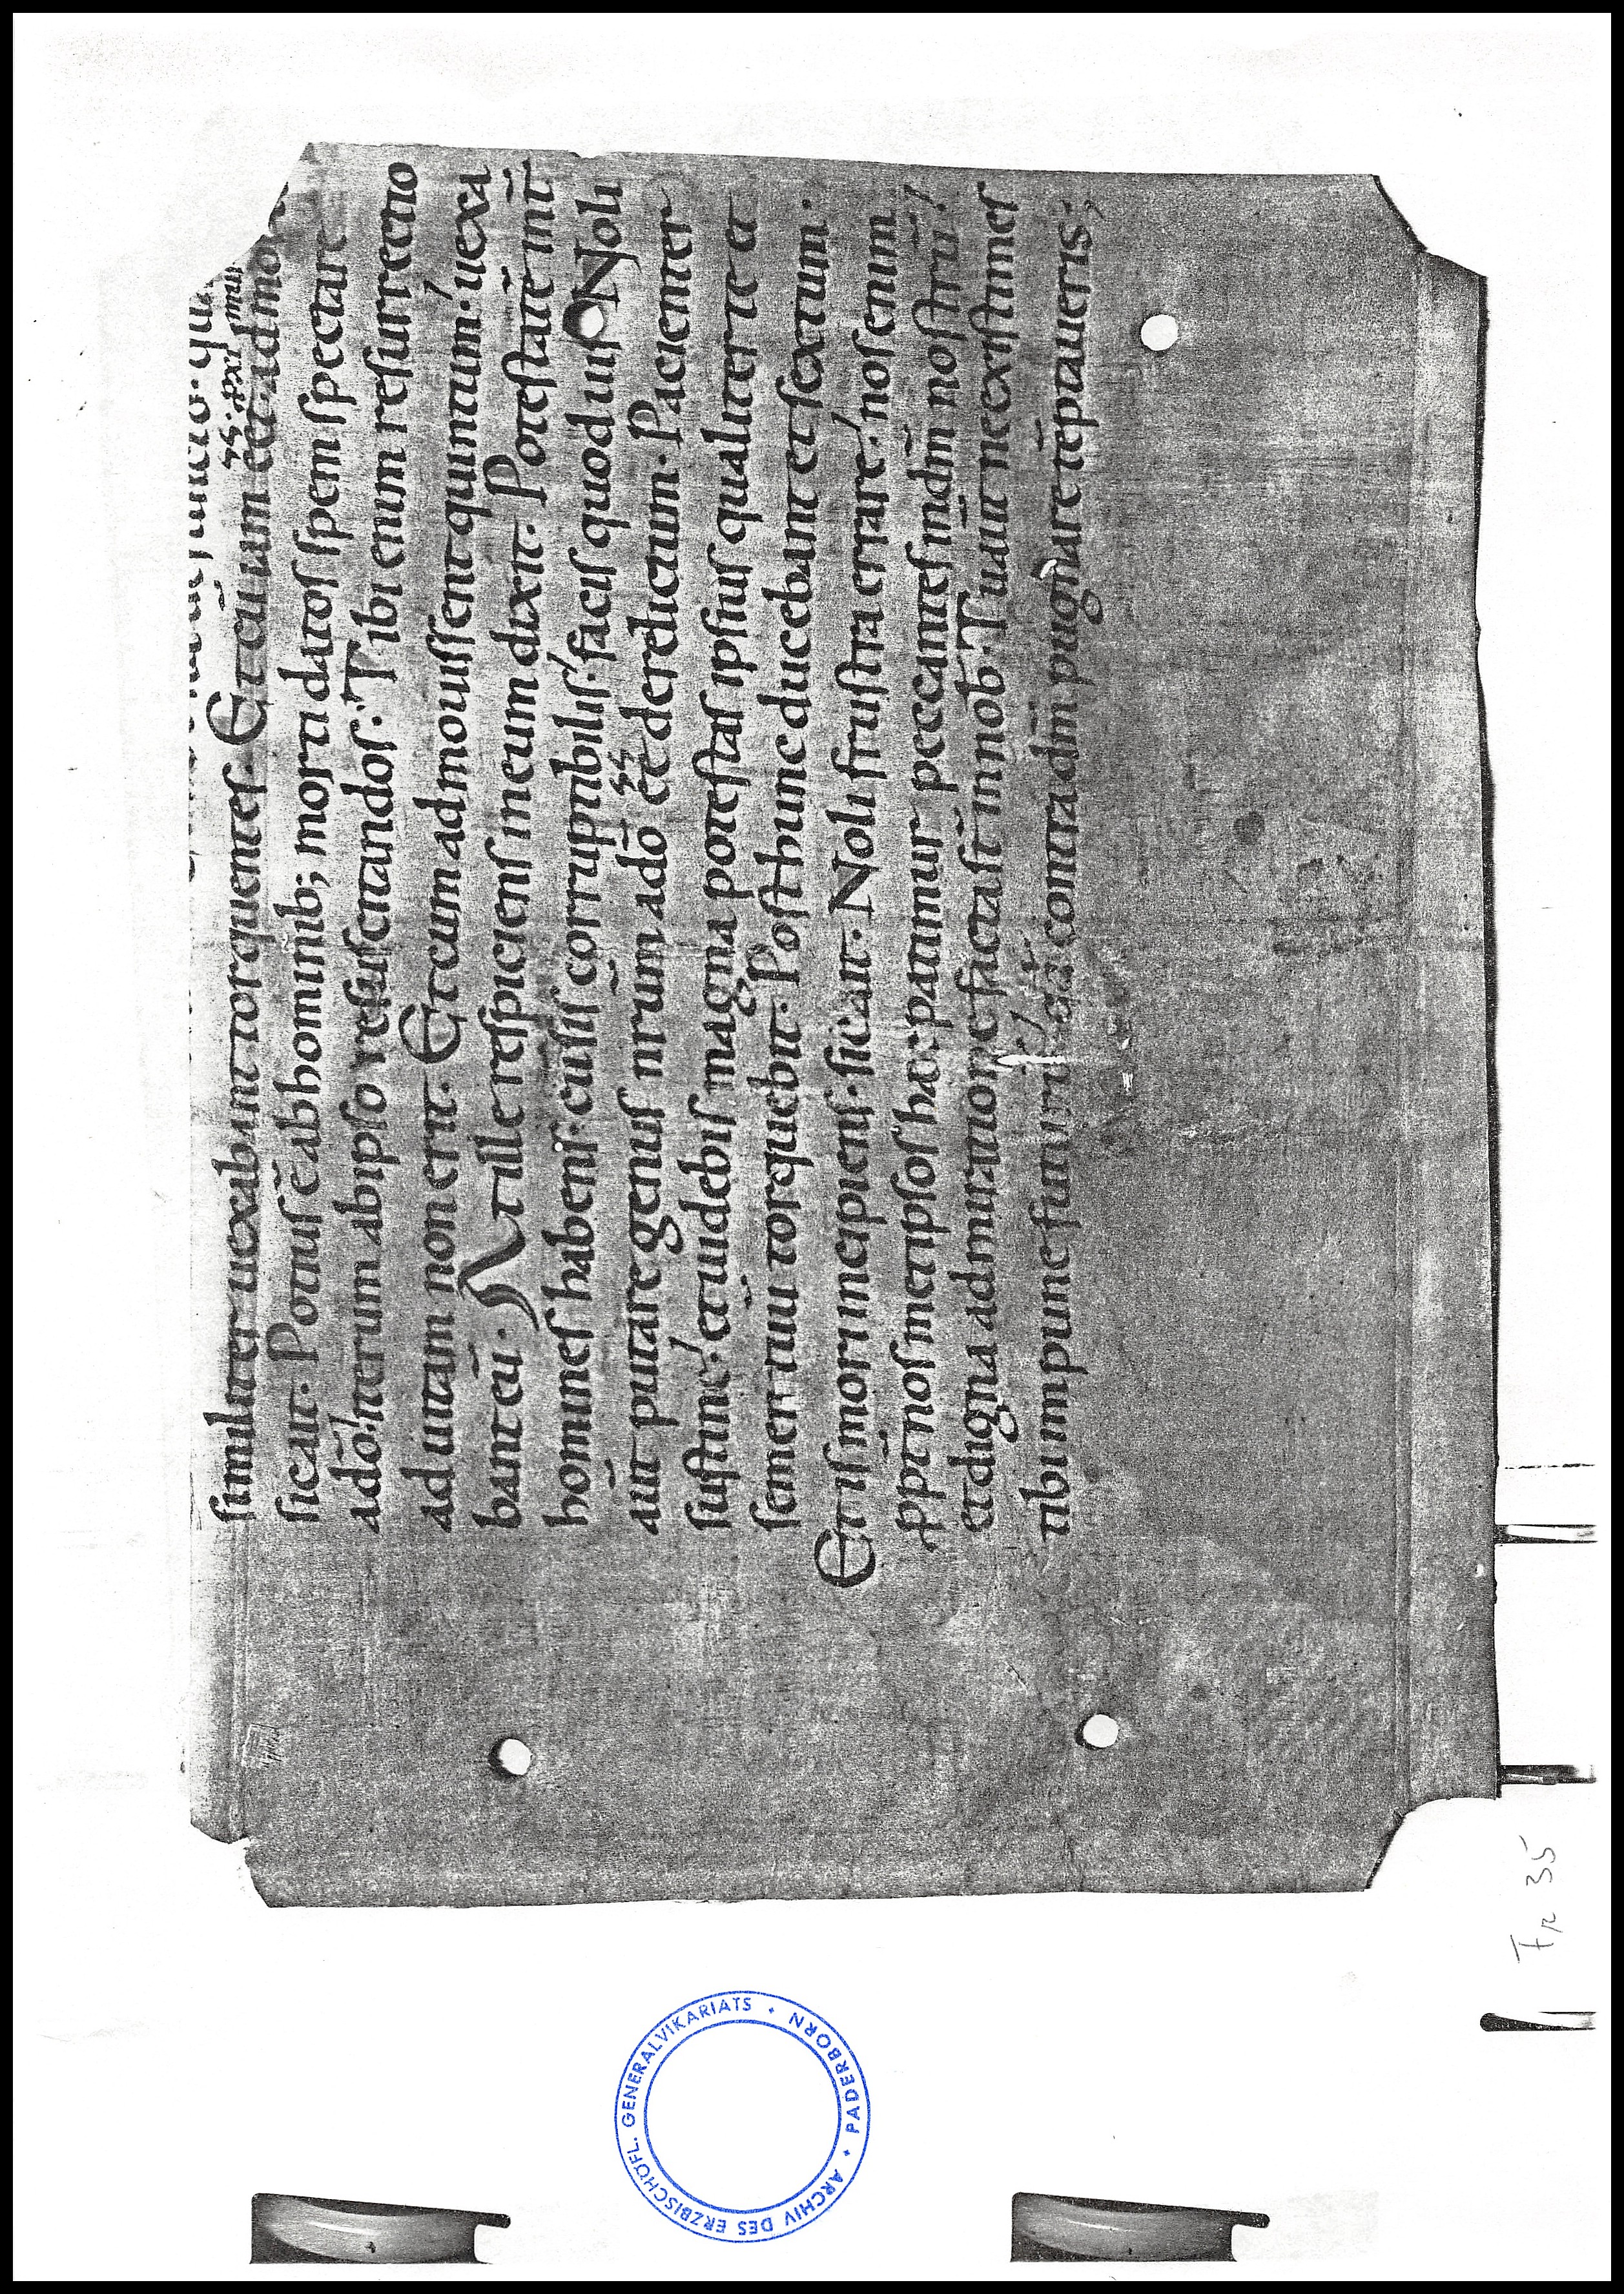 similiter uexabant torquentes. Et cū iam eēt. ad mor
sicait. Potius ē ab hominib; morti datos spem spectare
adō. iterum ab ipso resuscitandos. Tibi enim resurrectio
ad uitam non erit. Et cum admouissent quintum. uexa
bant eū. At ille respiciens in eum dixit. Potestatē int
homines habens. cū sis corruptibilis. facis quod uis. Noli
aūt putare genus nr̄um adō eē derelictum. Pacienter
sustine. et uidebis magna potestas ipsius qualiter te et
semen tuū torquebit. Post hunc ducebant et sextum.
Et is mori incipiens. sic ait. Noli frustra errare. nos enim
ꝓpt̄ nosmetipsos hac patimur peccantes in dm̄ nostrū.
et digna admiratione facta st̄ in nob. Tu aūt ne existimes
tibi impune futurū contra dm̄ pugnare tēptaueris;
Fr 35
ARCHIV DES ERZBISCHÖFL. GENERALVIKARIATS + PADERBORN +